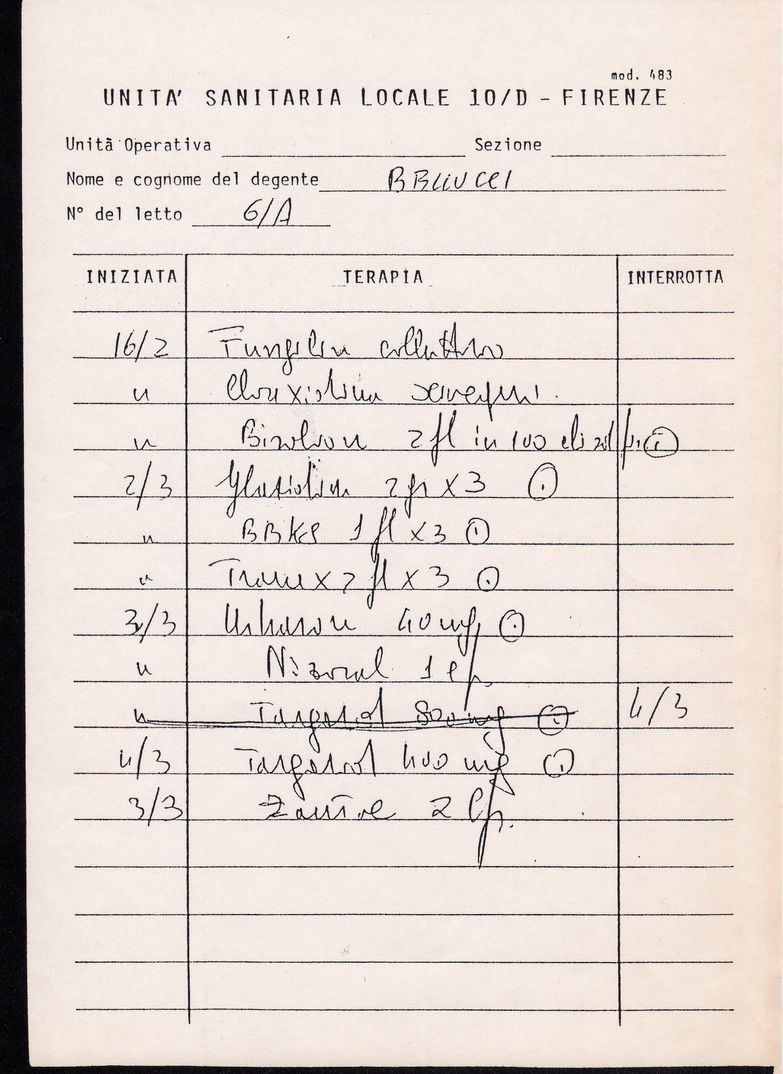 mod. 483
UNITA' SANITARIA LOCALE 10/D - FIRENZE
Unità Operativa Sezione
Nome e cognome del degente
N° del letto 6/A
INIZIATA TERAPIA INTERROTTA
16/2 Fungilin collutorio
"
" 2 fl in 100
2/3 2 gr x 3
" BBK8 1 fl x 3
" 2 fl x 3
3/3 Urbason 40 mg
" Nizoral 1 cp.
" Targosid 800 mg 4/3
4/3 Targosid 400 mg
3/3 Zantac 2 cp.